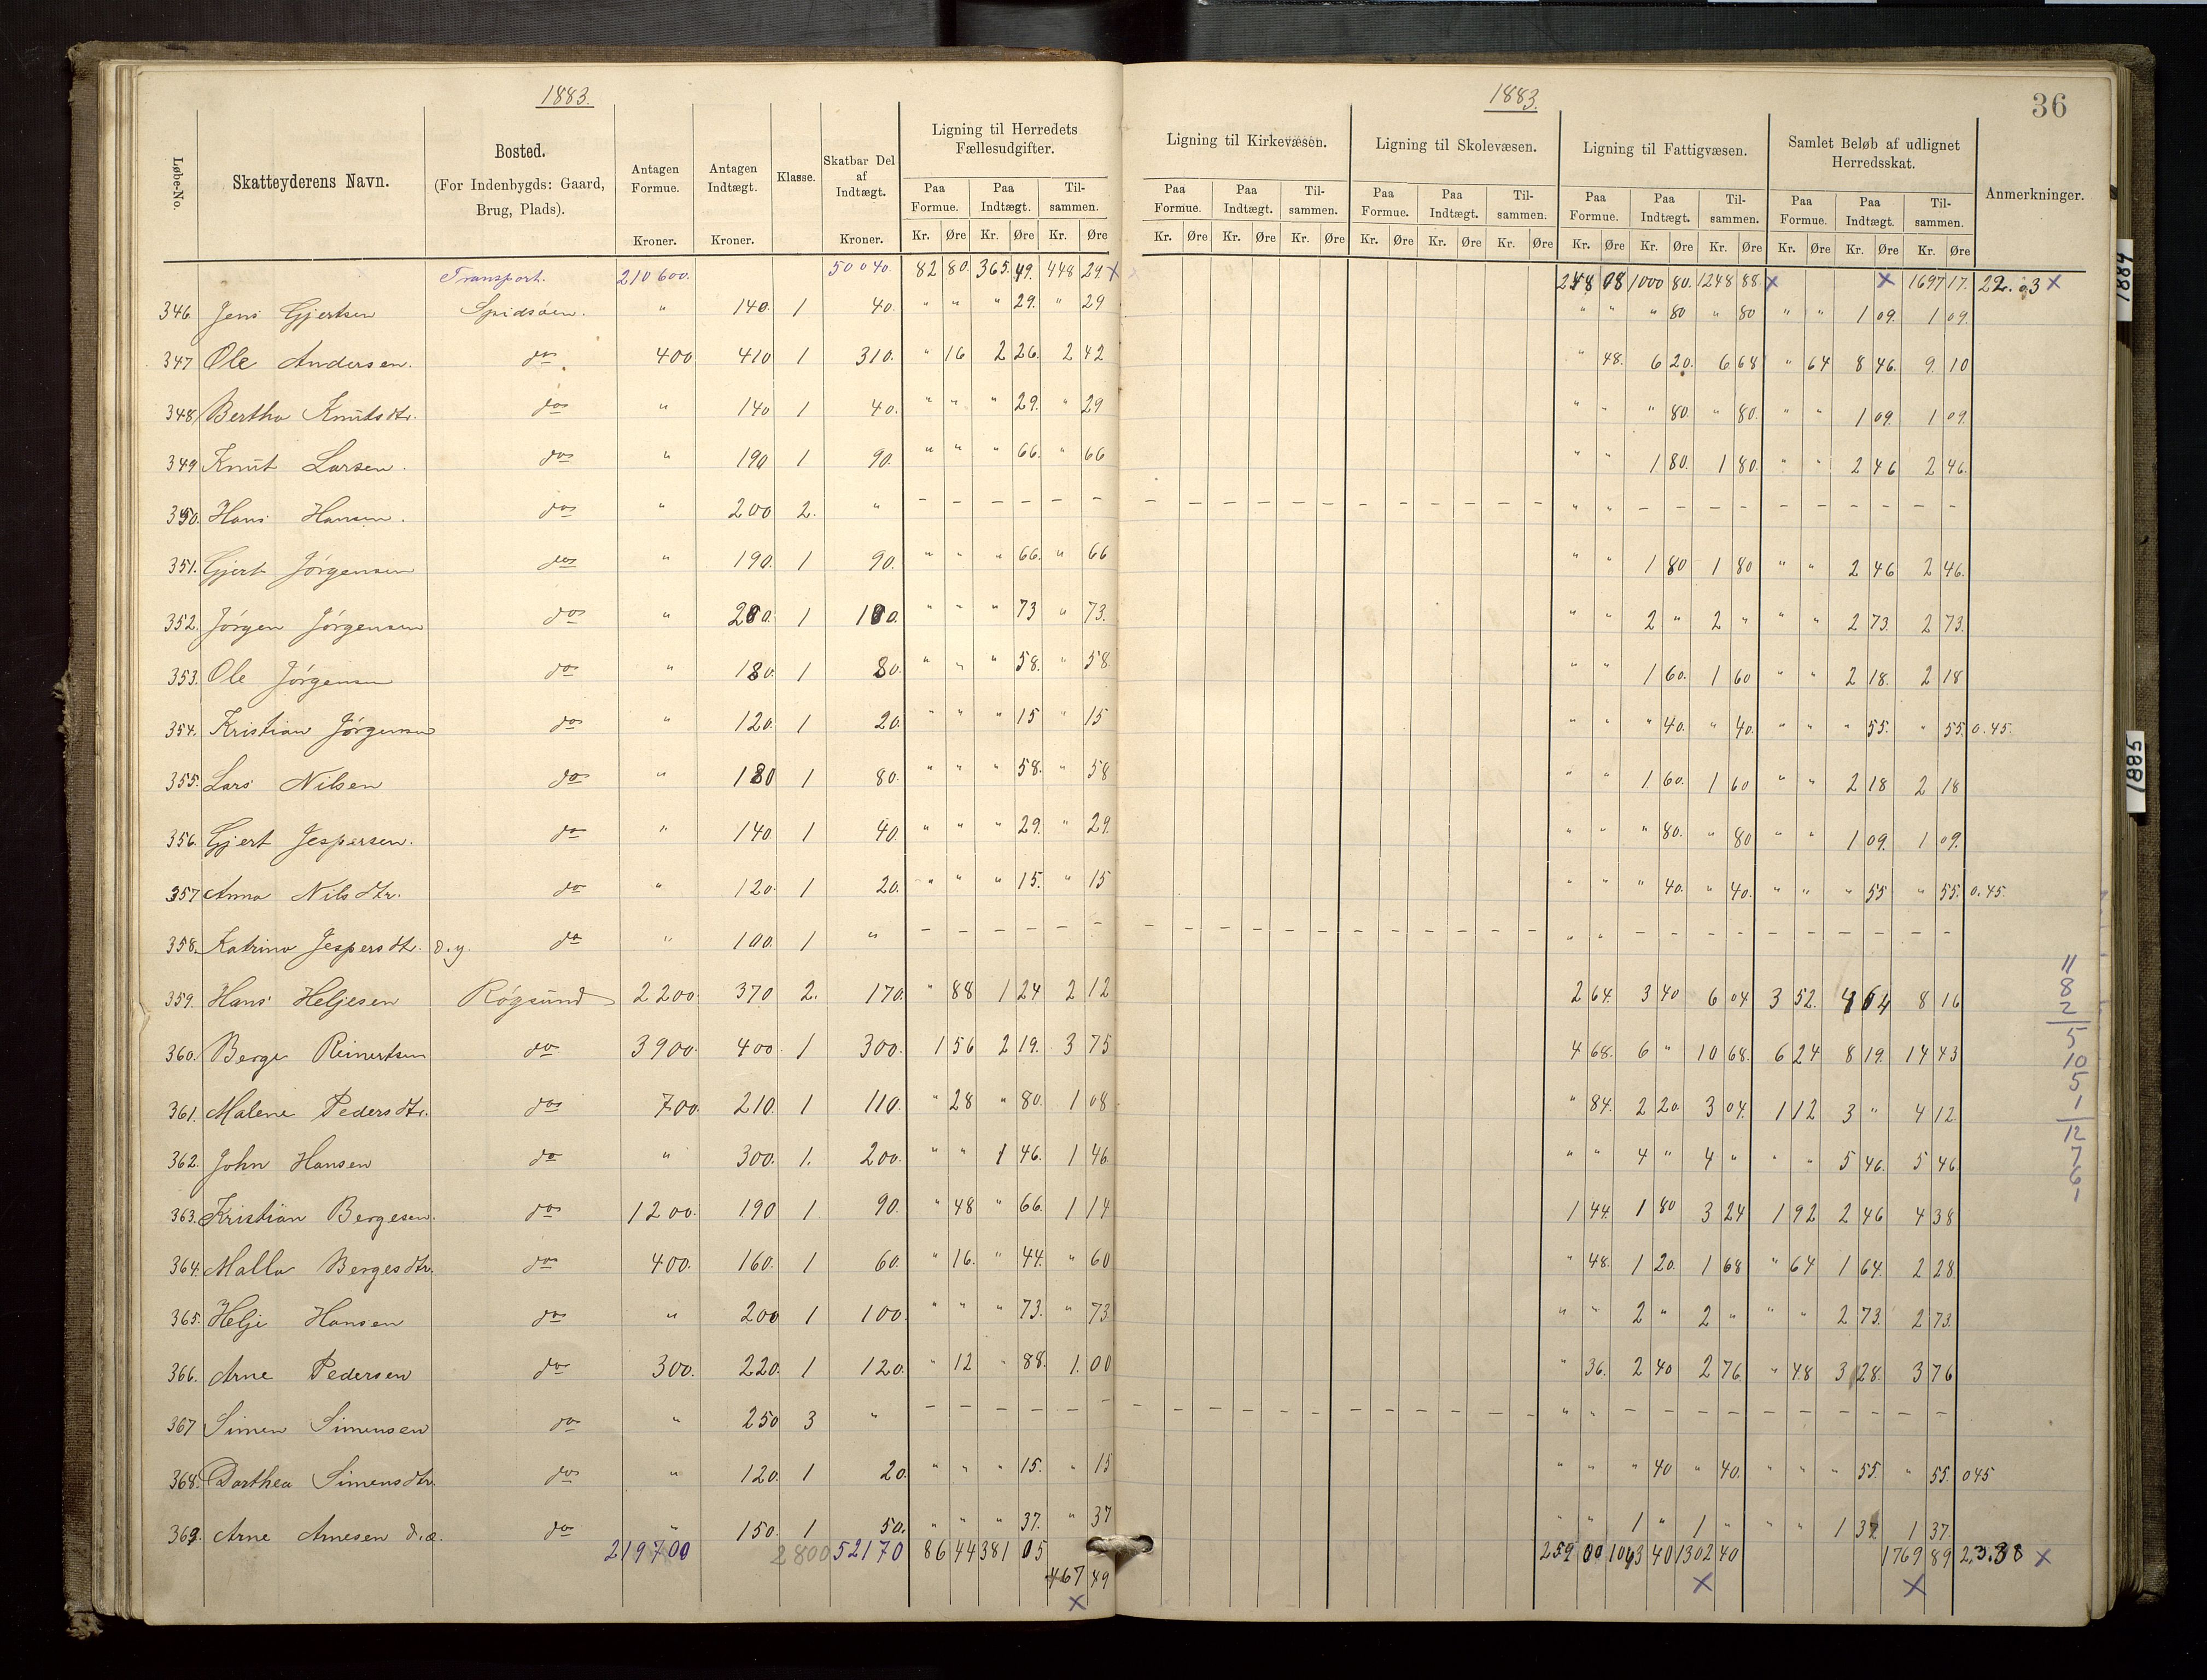 1883.
1883.
36
Løbe-No.
Skatteyderens Navn.
Bosted.
(For Indenbygds: Gaard, Brug, Plads).
Antagen Formue.
Kroner.
Antagen Indtægt.
Kroner.
Klasse.
Skatbar Del af Indtægt.
Kroner.
Ligning til Herredets Fællesudgifter.
Ligning til Kirkevæsen.
Ligning til Skolevæsen.
Ligning til Fattigvæsen.
Samlet Beløb af udlignet Herredsskat.
Anmerkninger.
Paa Formue. Paa Indtægt. Tilsammen. Paa Formue. Paa Indtægt. Tilsammen. Paa Formue. Paa Indtægt. Tilsammen. Paa Formue. Paa Indtægt. Tilsammen. Paa Formue. Paa Indtægt. Tilsammen.
Kr. Øre Kr. Øre Kr. Øre Kr. Øre Kr. Øre Kr. Øre Kr. Øre Kr. Øre Kr. Øre Kr. Øre Kr. Øre Kr. Øre Kr. Øre Kr. Øre Kr. Øre
Transport. 210600. 50040. 82 80. 365. 49. 448 29. x 248 08 1000 80. 1248 88. x x 1697 17. 22.03 x
346. Jens Gjertsen Spidsøen. " 140. 1 40. " " " 29. " 29 " " " 80 " 80 " " 1 09. 1 09.
347 Ole Andersen. do 400 410 1 310. " 16 2 26. 2 42 " 48. 6 20. 6 68 " 64 8 46. 9. 10
348. Bertha Knutsdtr. do " 140 1 40. " " " 29. " 29 " " " 80. " 80. " " 1 09. 1 09.
349 Knut Larsen. do " 190 1 90. " " " 66. " 66 " " 1 80. 1 80. " " 2 46 2 46.
350. Hans Hansen. do " 200 2. " – – – – – – – – – – – – – – – – – – " " – – – – – – – – – –
351. Gjert Jørgensen do " 190. 1 90. " " " 66. " 66 " " 1 80 1 80 " " 2 46 2 46.
352. Jørgen Jørgensen do " 200. 1 100. " " " 73 " 73. " " 2 " 2 " " " 2 73. 2 73.
353. Ole Jørgensen do " 180. 1 80. " " " 58. " 58 " " 1 60. 1 60 " " 2 18. 2 18
354. Kristian Jørgensen do " 120. 1 20. " " " 15 " 15 " " " 40. " 40. " " " 55. " 55. 0.45.
355. Lars Nilsen do " 180 1 80. " " " 58. " 58 " " 1. 60. 1 60 " " 2 18 2 18
356. Gjert Jespersen. do " 140 1 40. " " " 29. " 29. " " " 80. " 80 " " 1 09. 1 09.
357 Anna Nilsdtr. do " 120. 1 20. " " " 15. " 15 " " " 40. " 40. " " " 55 " 55. 0.45.
358. Katrina Jespersdtr. d.y. do " 100. 1 " – – – – – – – – – – – – – – – – – – " " – – – – – – – – – –
359. Hans Heljesen Røgsund 2200 370 2. 170. " 88 1 24 2 12 2 64. 3 40 6 04 3 52. 4 64 8 16
360. Berge Reinertsen do 3900. 400. 1 300. 1 56 2 19. 3 75 4 68. 6 " 10 68. 6 24 8 19. 14 43
361. Malene Pedersdtr. do 700. 210. 1 110. " 28 " 80. 1 08 " 84. 2 20. 3 04. 1 12 3 " 4 12.
362. John Hansen do " 300. 1. 200. " " 1 46. 1 46 " " 4 " 4 " " " 5 46. 5 46.
363. Kristian Bergesen. do 1200. 190 1 90. " 48 " 66. 1 14 1 44. 1 80 3 24 1 92 2 46 4 38
364. Malla Bergesdtr. do 400. 160. 1 60. " 16. " 44. " 60 " 48. 1 20. 1 68 " 64 1 64. 2 28
365. Helje Hansen do " 200 1 100. " " " 73. " 73 " " 2 " 2 " " " 2 73. 2 73.
366. Arne Pedersen do 300. 220. 1 120. " 12 " 88. 1. 00 " 36. 2 40 2 76. " 48 3 28. 3 76
367 Simen Simensen do " 250 3 " – – – – – – – – – – – – – – – – – – " " – – – – – – – – – –
368. Dorthea Simensdtr. do " 120. 1 20. " " " 15. " 15 " " " 40 " 40. " " " 55. " 55. 045
369. Arne Arnesen d.æ. do " 150. 1 50. " " " 37. " 37 " " 1 " 1 " " " 1 37 1 37.
219700 2800 52170 86 44 381 05 259 00 1043 40 1302 40 1769 89 23.38 x
467 49
x x x
11
8
2
5
10
5
1
12
7
6
1
1884
1885